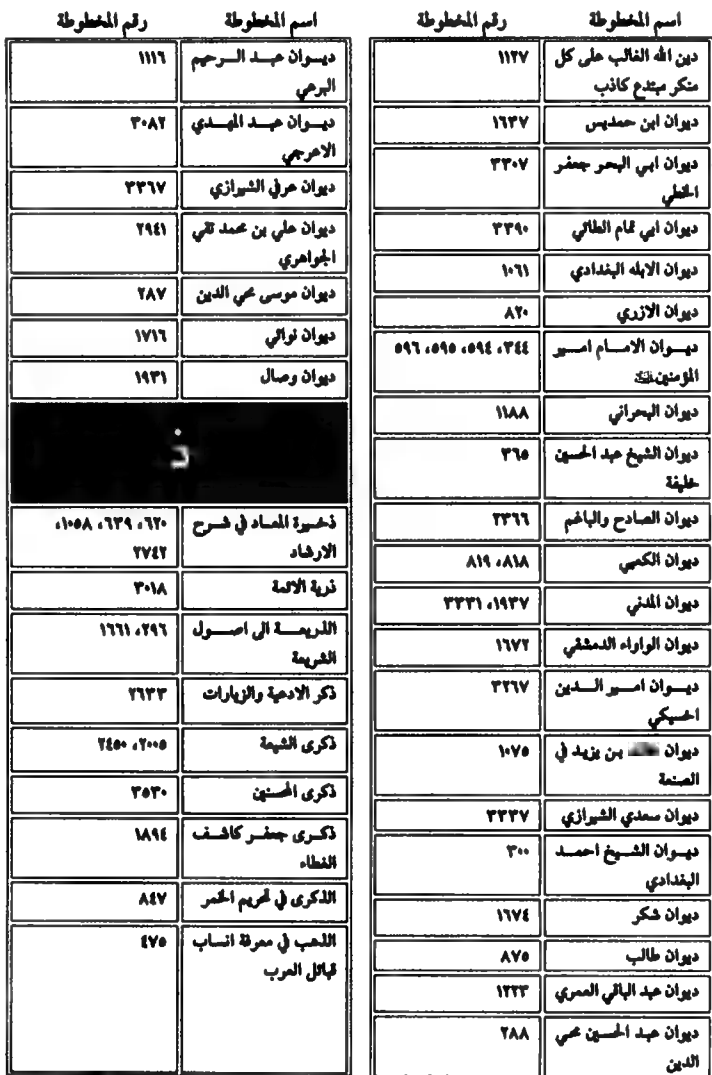 اسم المخطوطة رقم المخطوطة
دين الله الغالب على كل ١١٢٧
منكر مبتدع كاذب
ديوان ابن حمديس ١٦٣٧
ديوان ابي البحر جعفر ٣٣٠٧
الخطي
ديوان ابي تمام الطائي ٣٣٩٠
ديوان الابله البغدادي ١٠٦١
ديوان الازري ٨٢٠
ديوان الامام امير ٣٤٤، ٥٩٤، ٥٩٥، ٥٩٦
المؤمنين
ديوان البحراني ١١٨٨
ديوان الشيخ عبد الحسين ٣٦٥
خليفة
ديوان الصادح والباغم ٢٣٦٦
ديوان الكعبي ٨١٨، ٨١٩
ديوان المدني ١٩٣٧، ٣٣٣١
ديوان الواواء الدمشقي ١٦٧٢
ديوان امير الدين ٣٢٦٧
احسيكي
ديوان بن يزيد في ١٠٧٥
الصنعة
ديوان سعدي الشيرازي ٣٣٣٧
ديوان الشيخ احمد ٣٠٠
البغدادي
ديوان شكر ١٦٧٤
ديوان طالب ٨٧٥
ديوان عبد الباقي العمري ١٢٢٣
ديوان عبد الحسين محي ٢٨٨
الدين
اسم المخطوطة رقم المخطوطة
ديوان عبد الرحيم ١١١٦
البرعي
ديوان عبد المهدي ٣٠٨٢
الاعرجي
ديوان عرفي الشيرازي ٣٣٦٧
ديوان علي بن محمد تقي ٢٩٤١
الجواهري
ديوان موسى محي الدين ٢٨٧
ديوان نوائي ١٧١٦
ديوان وصال ١٩٣١
ذ
ذخيرة المعاد في شرح ٦٢٠، ٦٣٩، ١٠٥٨،
الارشاد ٢٧٤٢
ذرية الائمة ٣٠١٨
الذريعة الى اصول ٢٩٦، ١٦٦١
الشريعة
ذكر الادعية والزيارات ٢٦٣٣
ذكرى الشيعة ٢٠٠٥، ٢٤٥٠
ذكرى المحسنين ٣٥٣٠
ذكرى جعفر كاشف ١٨٩٤
الغطاء
الذكرى في تحريم الخمر ٨٤٧
الذهب في معرفة انساب ٤٧٥
قبائل العرب